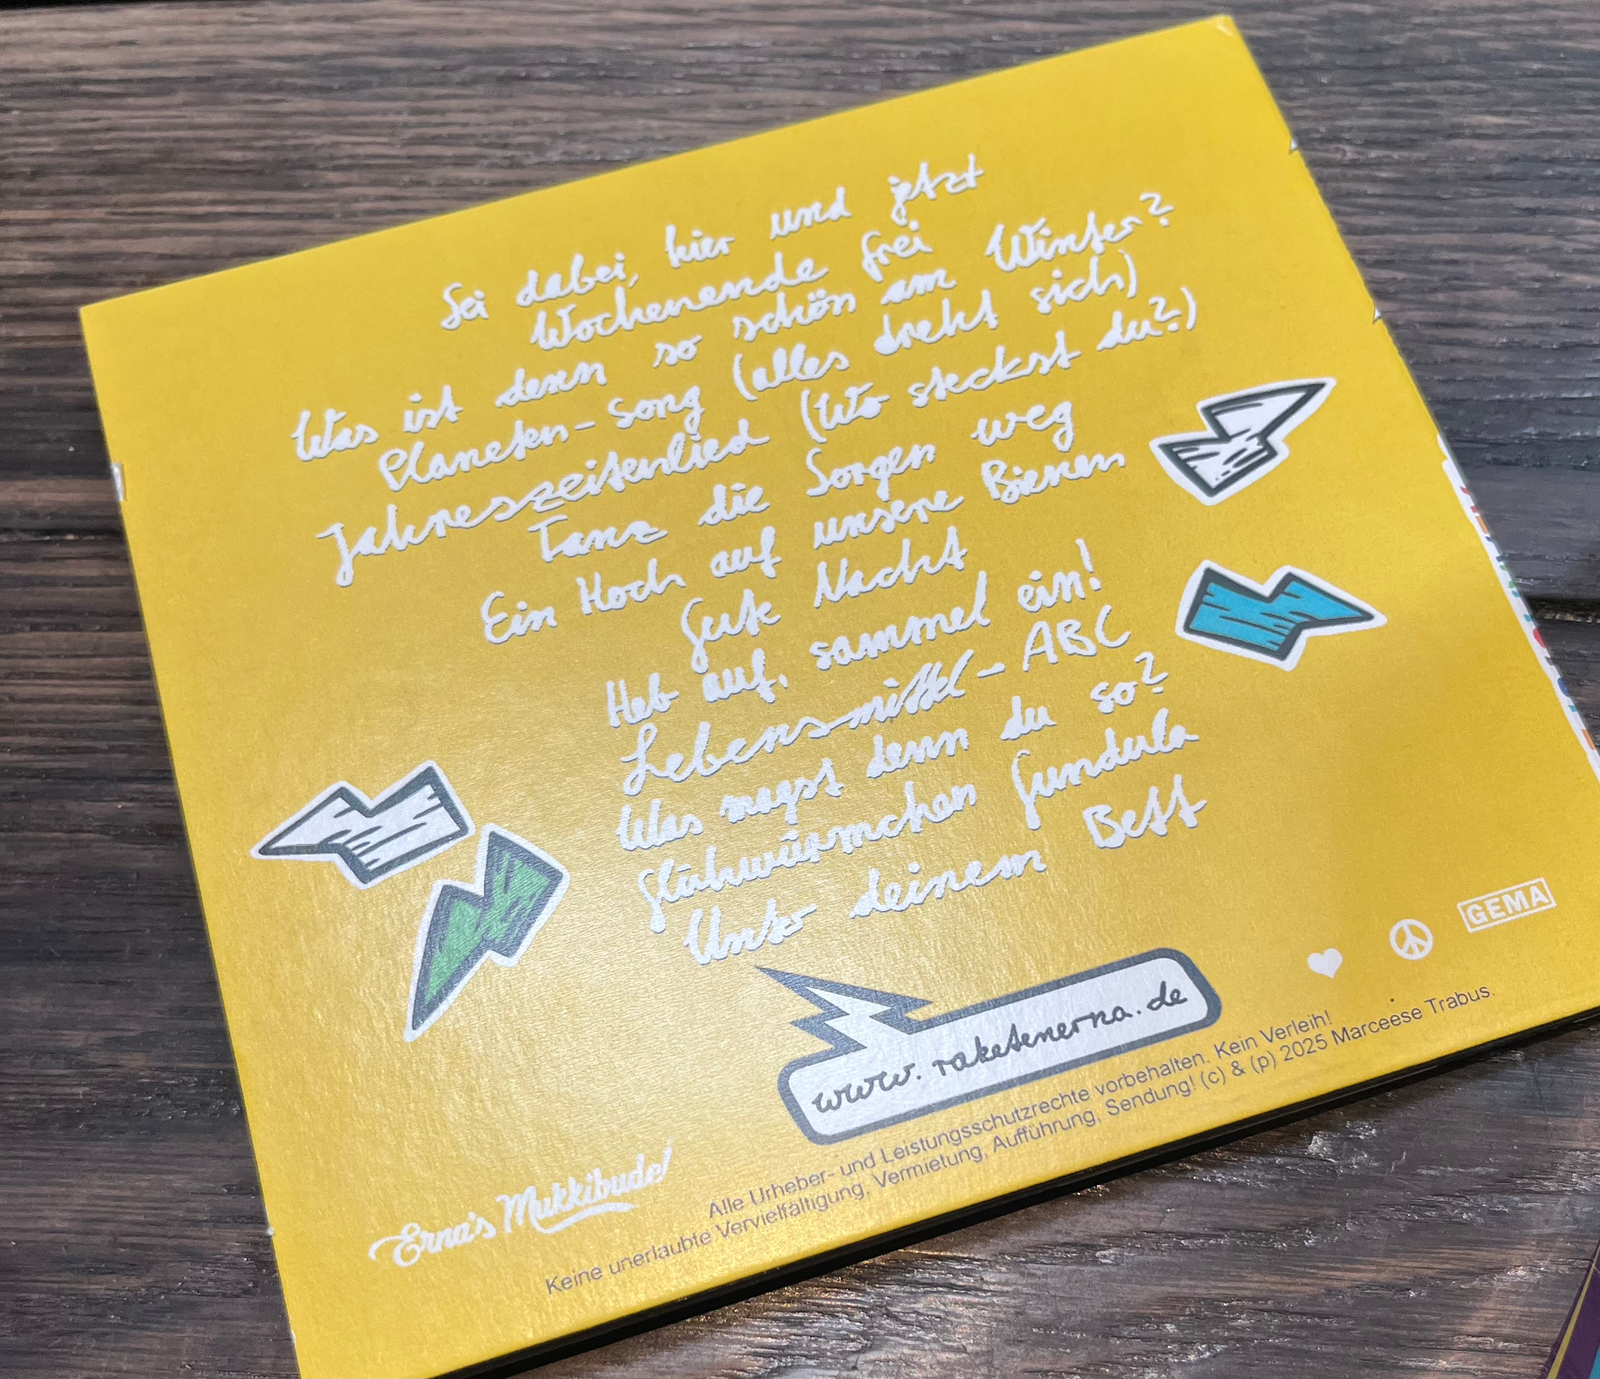 Sei dabei, hier und jetzt
Wochenende frei
Was ist denn so schön am Winter?
Planeten-Song (alles dreht sich)
Jahreszeitenlied (Wo steckst du?)
Tanz die Sorgen weg
Ein Hoch auf unsere Bienen
Gute Nacht
Heb auf, sammel ein!
Lebensmittel-ABC
Was magst denn du so?
Glühwürmchen Gundula
Unter deinem Bett
www.raketenerna.de
GEMA
Erna's Mukkibude!
Alle Urheber- und Leistungsschutzrechte vorbehalten. Kein Verleih!
Keine unerlaubte Vervielfältigung, Vermietung, Aufführung, Sendung! (c) & (p) 2025 Marceese Trabus.